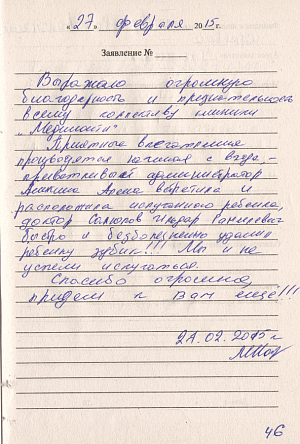 « 27 » февраля 2015 г.
Заявление №
Выражаю огромную
благодарность и признательность
всему коллективу клиники
Приятные впечатления
начиная с входа, –
приветливый администратор
Алена встретила и
расположила испуганного ребенка,
доктор
быстро и безболезненно удалил
ребенку зубик!!! Мы и не
успели испугаться.
Спасибо огромное,
придем к Вам ещё!!!
24.02.2015 г
46